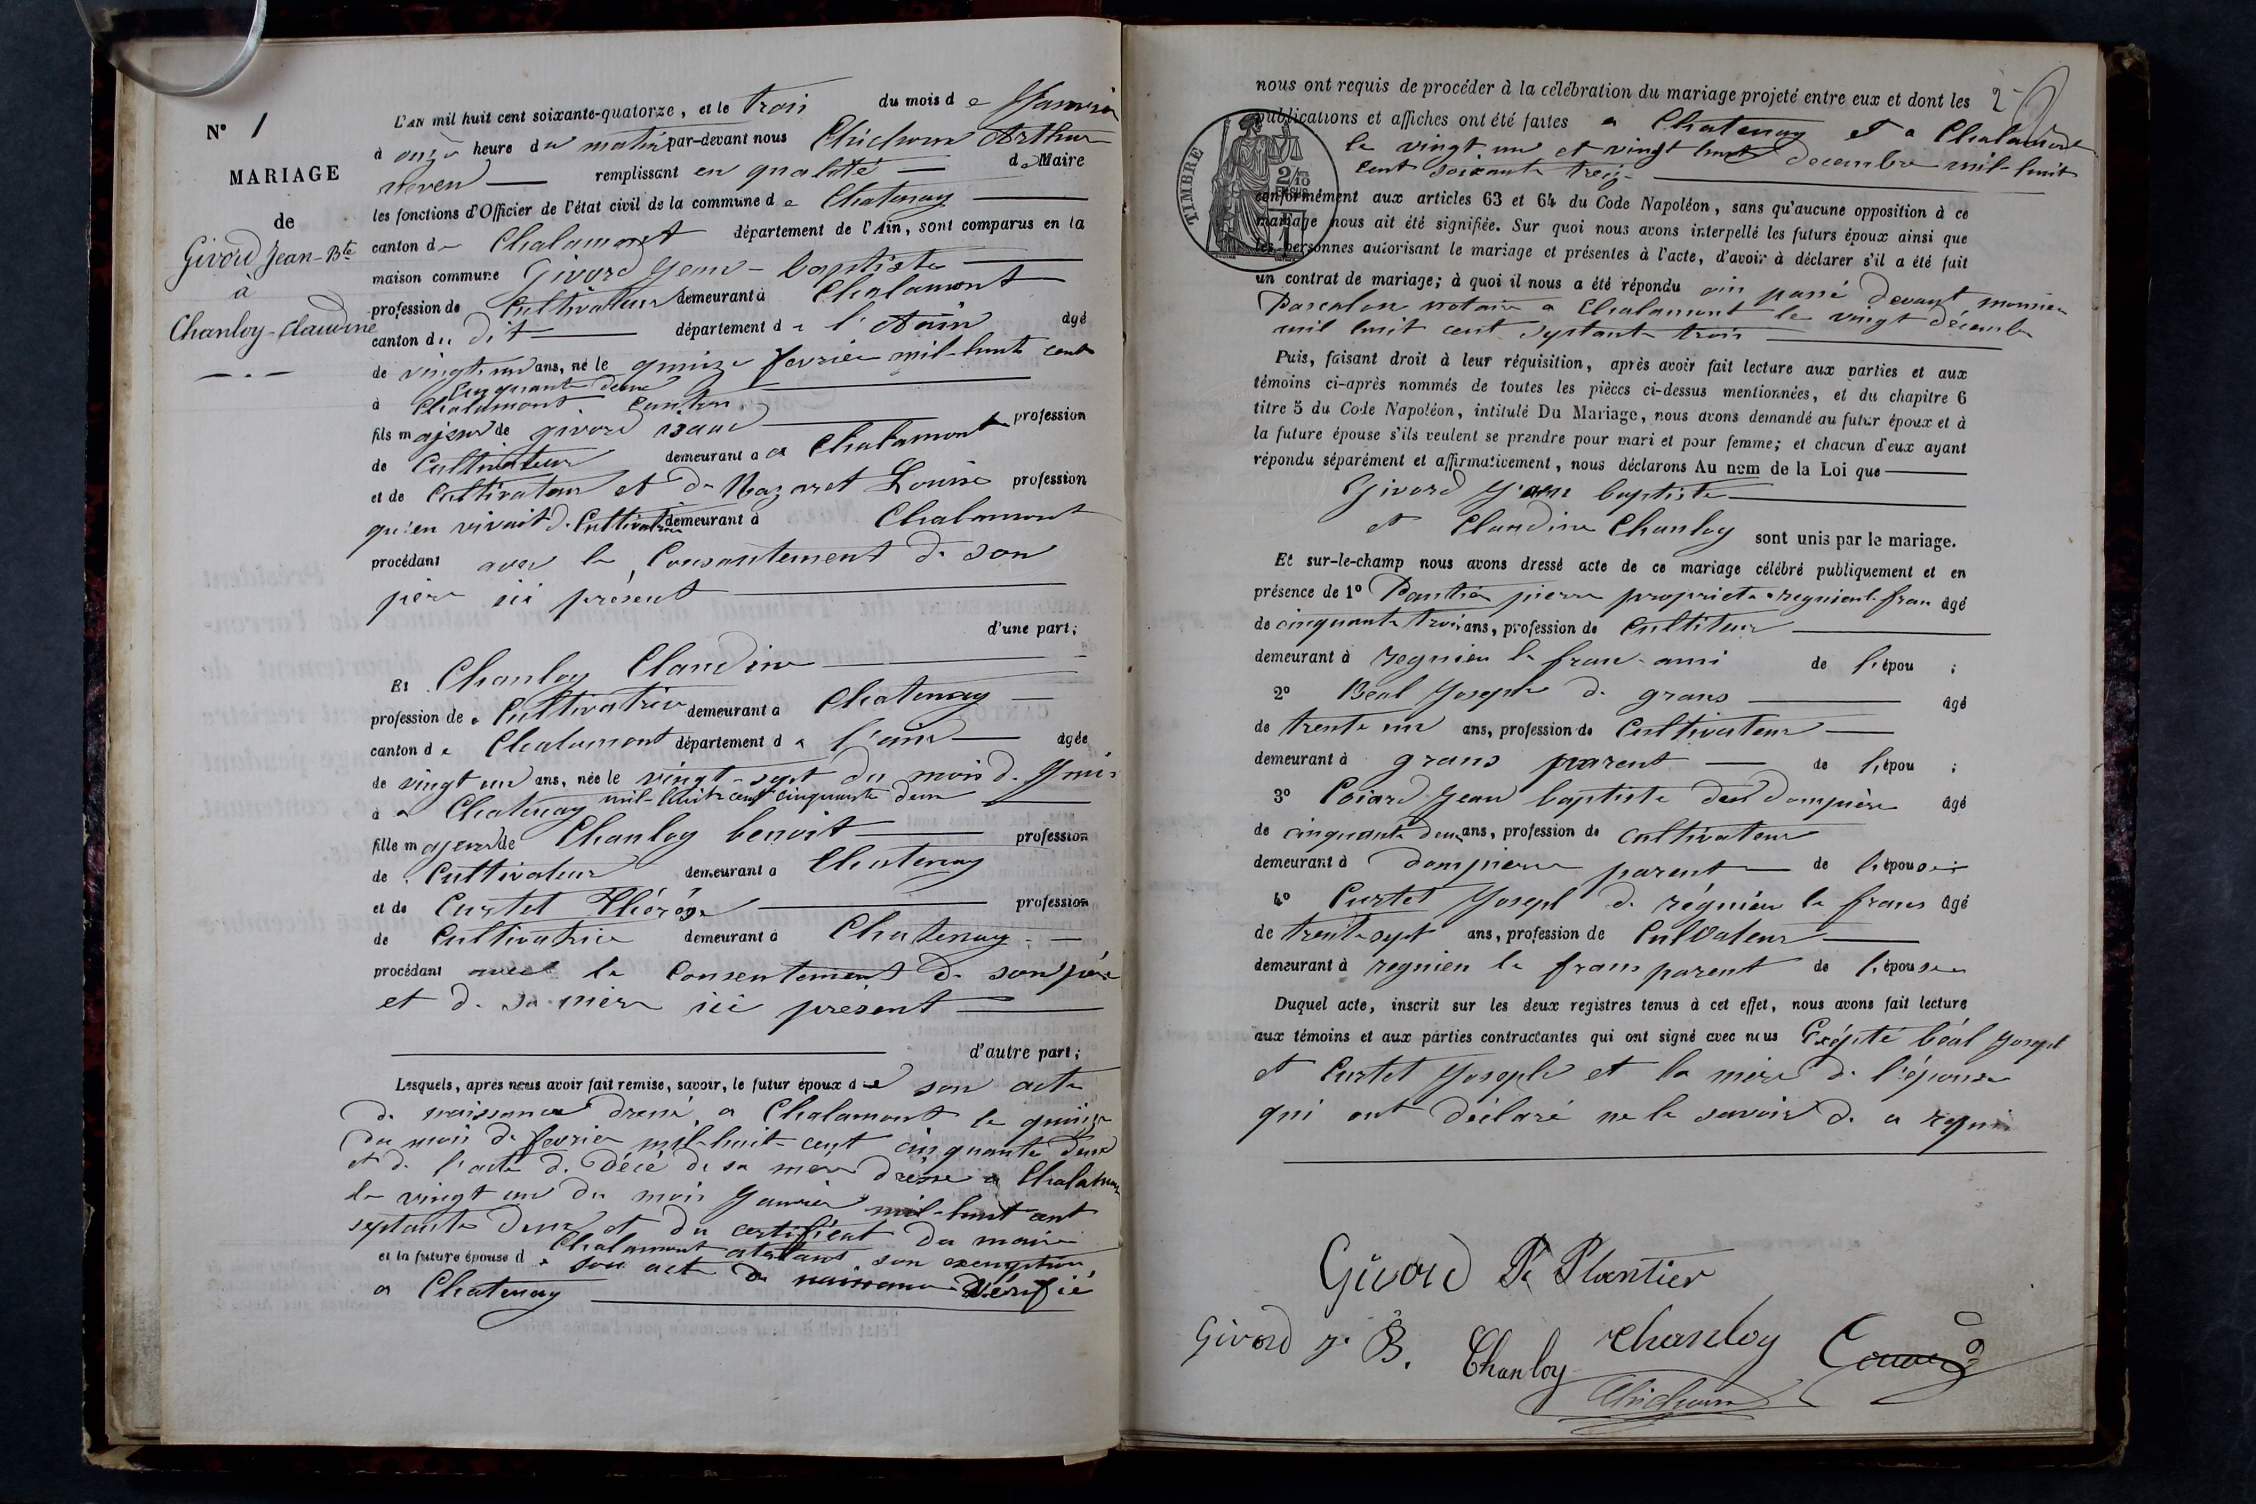 N° 1
MARIAGE
de
Givord Jean-Bte
à
Chanloy-Claudine
L'AN mil huit cent soixante-quatorze, et le trois du mois de Janvier
à onze heure du matin par-devant nous Chichoux Arthur
remplissant en qualité de Maire
les fonctions d'Officier de l'état civil de la commune de Chatenay
canton de Chalamont département de l'Ain, sont comparus en la
maison commune Givord Jean-baptiste
profession de Cultivateur demeurant à Chalamont
canton du dit département de l'Ain âgé
de vingt un ans, né le quinze fevrier mil-huit cent
cinquante deux
à Chalamont Canton
fils majeur de givord isaac profession
de Cultivateur demeurant a a Chalamont
et de Cultivateur et de Nazaret Louise profession
qu'en vivait de Cultivatrice demeurant à Chalamont
procédant avec le Consentement de son
père ici présent
d'une part;
Et Chanloy Claudine
profession de Cultivatrice demeurant a Chatenay
canton de Chalamont département de l'ain âgée
de vingt un ans, née le vingt-sept du mois de
à a Chatenay mil-huit cent cinquante deux
fille majeur de Chanloy benoit profession
de Cultivateur demeurant a Chatenay
et de Curtet Thérèse profession
de Cultivatrice demeurant à Chatenay
procédant avec le Consentement de son père
et de sa mère ici présent
d'autre part;
Lesquels, après nous avoir fait remise, savoir, le futur époux de son acte
de naissance dressé a Chalamont le quinze
du mois de fevrier mil-huit-cent cinquante deux
et de l'acte de Décé de sa mère dressé a Chalamont
le vingt un du mois Janvier mil-huit cent
septante deux et du certificat du maire
Chalamont atestant son exemption
et la future épouse de son acte de naissance Vérifié
a Chatenay
2
nous ont requis de procéder à la célébration du mariage projeté entre eux et dont les
publications et affiches ont été faites a Chatenay et a Chalamont
le vingt un et vingt huit decembre mil-huit
cent soixante treize
TIMBRE
2/10
EN SUS
1
conformément aux articles 63 et 64 du Code Napoléon, sans qu'aucune opposition à ce
mariage nous ait été signifiée. Sur quoi nous avons interpellé les futurs époux ainsi que
les personnes autorisant le mariage et présentes à l'acte, d'avoir à déclarer s'il a été fait
un contrat de mariage; à quoi il nous a été répondu oui passé devant monsieur
Pascalon notaire a Chalamont le vingt décembre
mil huit cent septante trois
Puis, faisant droit à leur réquisition, après avoir fait lecture aux parties et aux
témoins ci-après nommés de toutes les pièces ci-dessus mentionnées, et du chapitre 6
titre 5 du Code Napoléon, intitulé Du Mariage, nous avons demandé au futur époux et à
la future épouse s'ils veulent se prendre pour mari et pour femme; et chacun d'eux ayant
répondu séparément et affirmativement, nous déclarons Au nom de la Loi que
Givord Jean baptiste
et Claudine Chanloy sont unis par le mariage.
Et sur-le-champ nous avons dressé acte de ce mariage célébré publiquement et en
présence de 1° Plantier pierre âgé
de cinquante trois ans, profession de Cultiteur
demeurant à regnieu le fran ami de l'épou ;
2° Béal Joseph de grans âgé
de trente un ans, profession de Cultivateur
demeurant à grans parent de l'épou ;
3° Jean baptiste dompière âgé
de cinquante deux ans, profession de cultivateur
demeurant à dompierre parent de l'épouse
4° Curtet Joseph de régnieu le frans âgé
de trente sept ans, profession de Culvateur
demeurant à regnieu le frans parent de l'épouse
Duquel acte, inscrit sur les deux registres tenus à cet effet, nous avons fait lecture
aux témoins et aux parties contractantes qui ont signé avec nous Exépté béal Joseph
et Curtet Joseph et la mère de l'épouse
qui ont déclaré ne le savoir de a requis
Givord P. Plantier
Givord J. B. Chanloy Chanloy
Chichoux